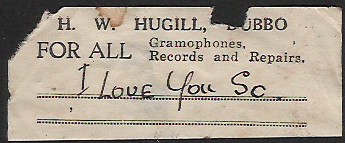 H. W. HUGILL, DUBBO
FOR ALL Gramophones,
Records and Repairs.
I Love You So